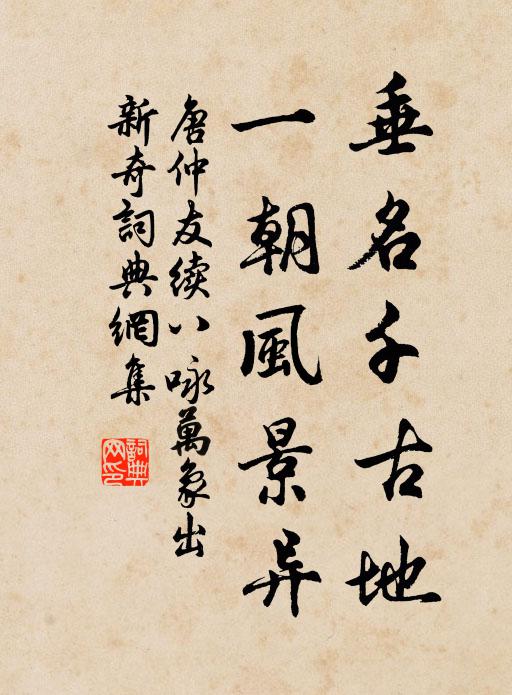 垂名千古地
一朝風景异
唐仲友續八咏萬象出
新奇詞典網集
詞典網印